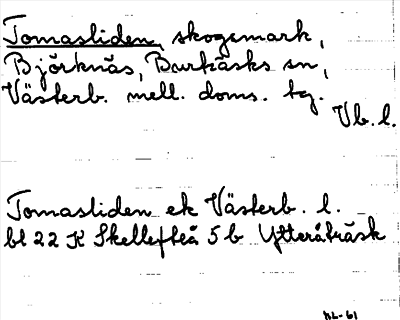 Tomasliden, skogsmark,
Björknäs, Burträsks sn,
Västerb. mell. doms. tg.
Vb. l.
Tomasliden ek Västerb. l.
bl 22 K Skellefteå 5 b Ytteråträsk